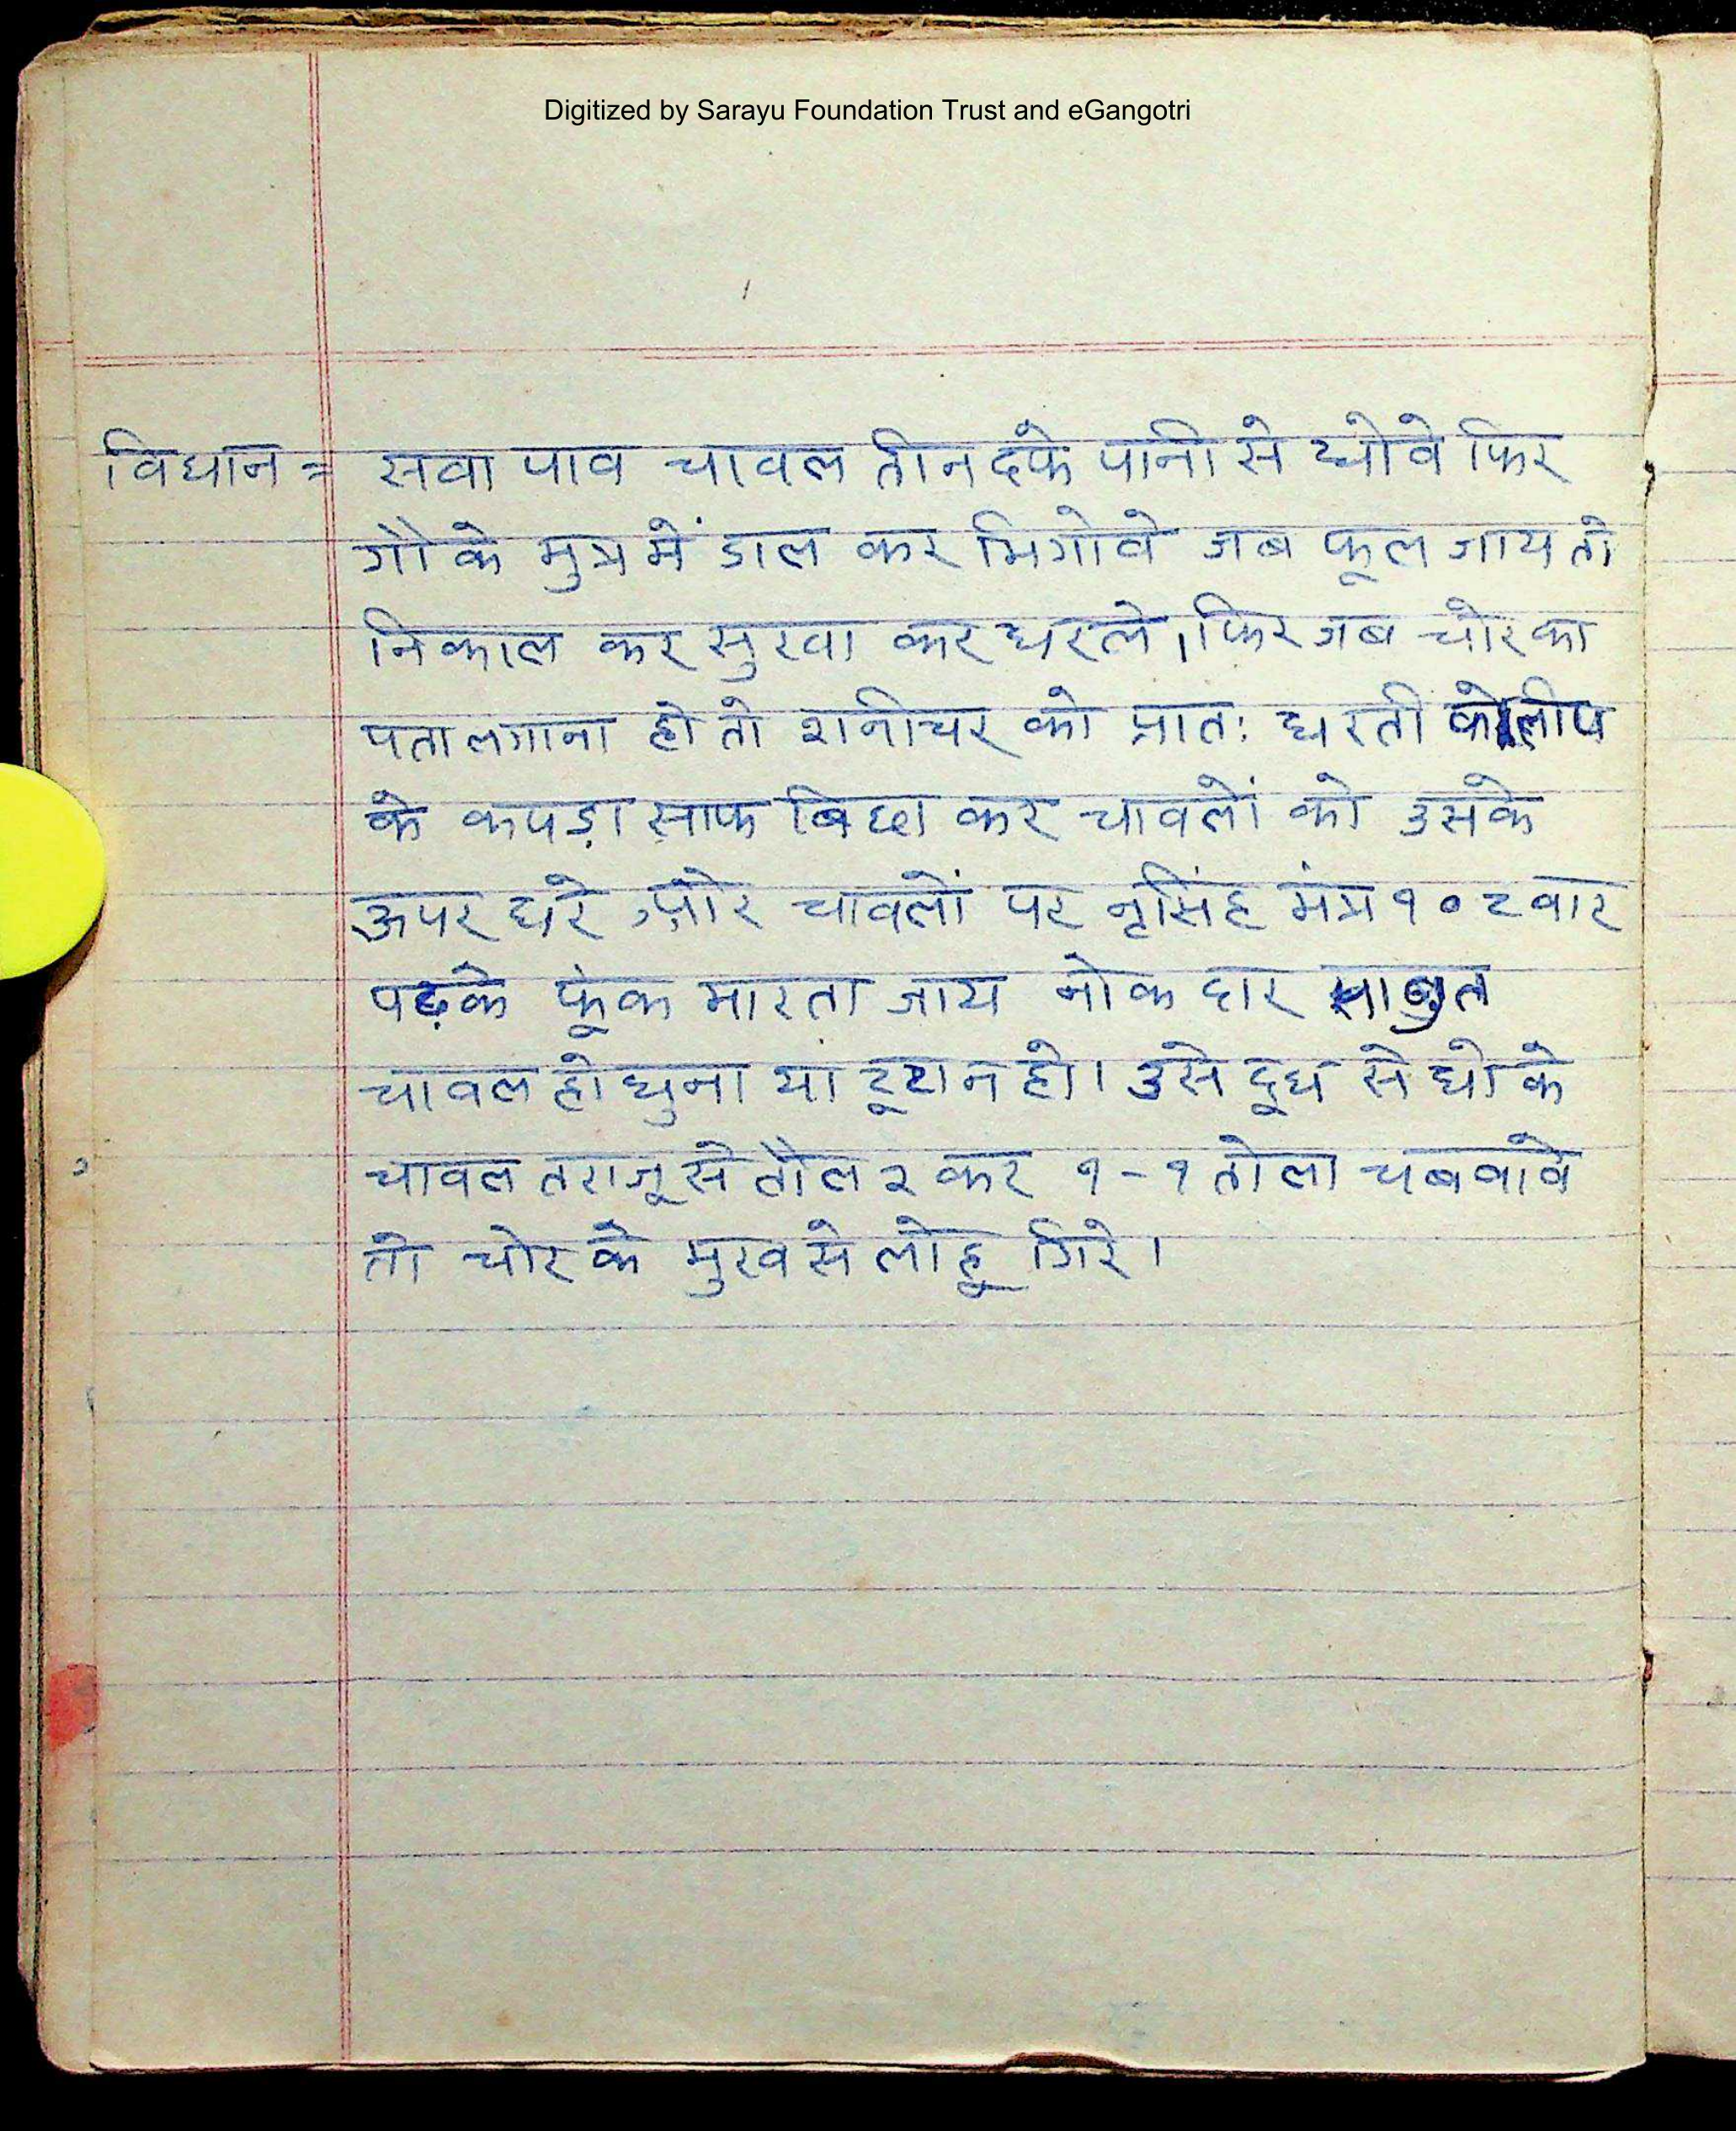 Digitized by Sarayu Foundation Trust and eGangotri
विधान = सवा पाव चावल तीन दफे पानी से धोवे फिर
गौ के मुत्र में डाल कर भिगोवे जब फूल जाय तो
निकाल कर सुखा कर धरले। फिर जब चोर का
पता लगाना हो तो शनीचर को प्रातः धरती को लीप
के कपड़ा साफ बिछा कर चावलों को उसके
ऊपर धरे और चावलों पर नृसिंह मंत्र १०८ वार
पढ़के फूंक मारता जाय नोक दार साबुत
चावल हो घुना या टूटा न हो। उसे दूध से धो के
चावल तराजू से तौल २ कर १-१ तोला चबवावे
तो चोर के मुख से लोहू गिरे।